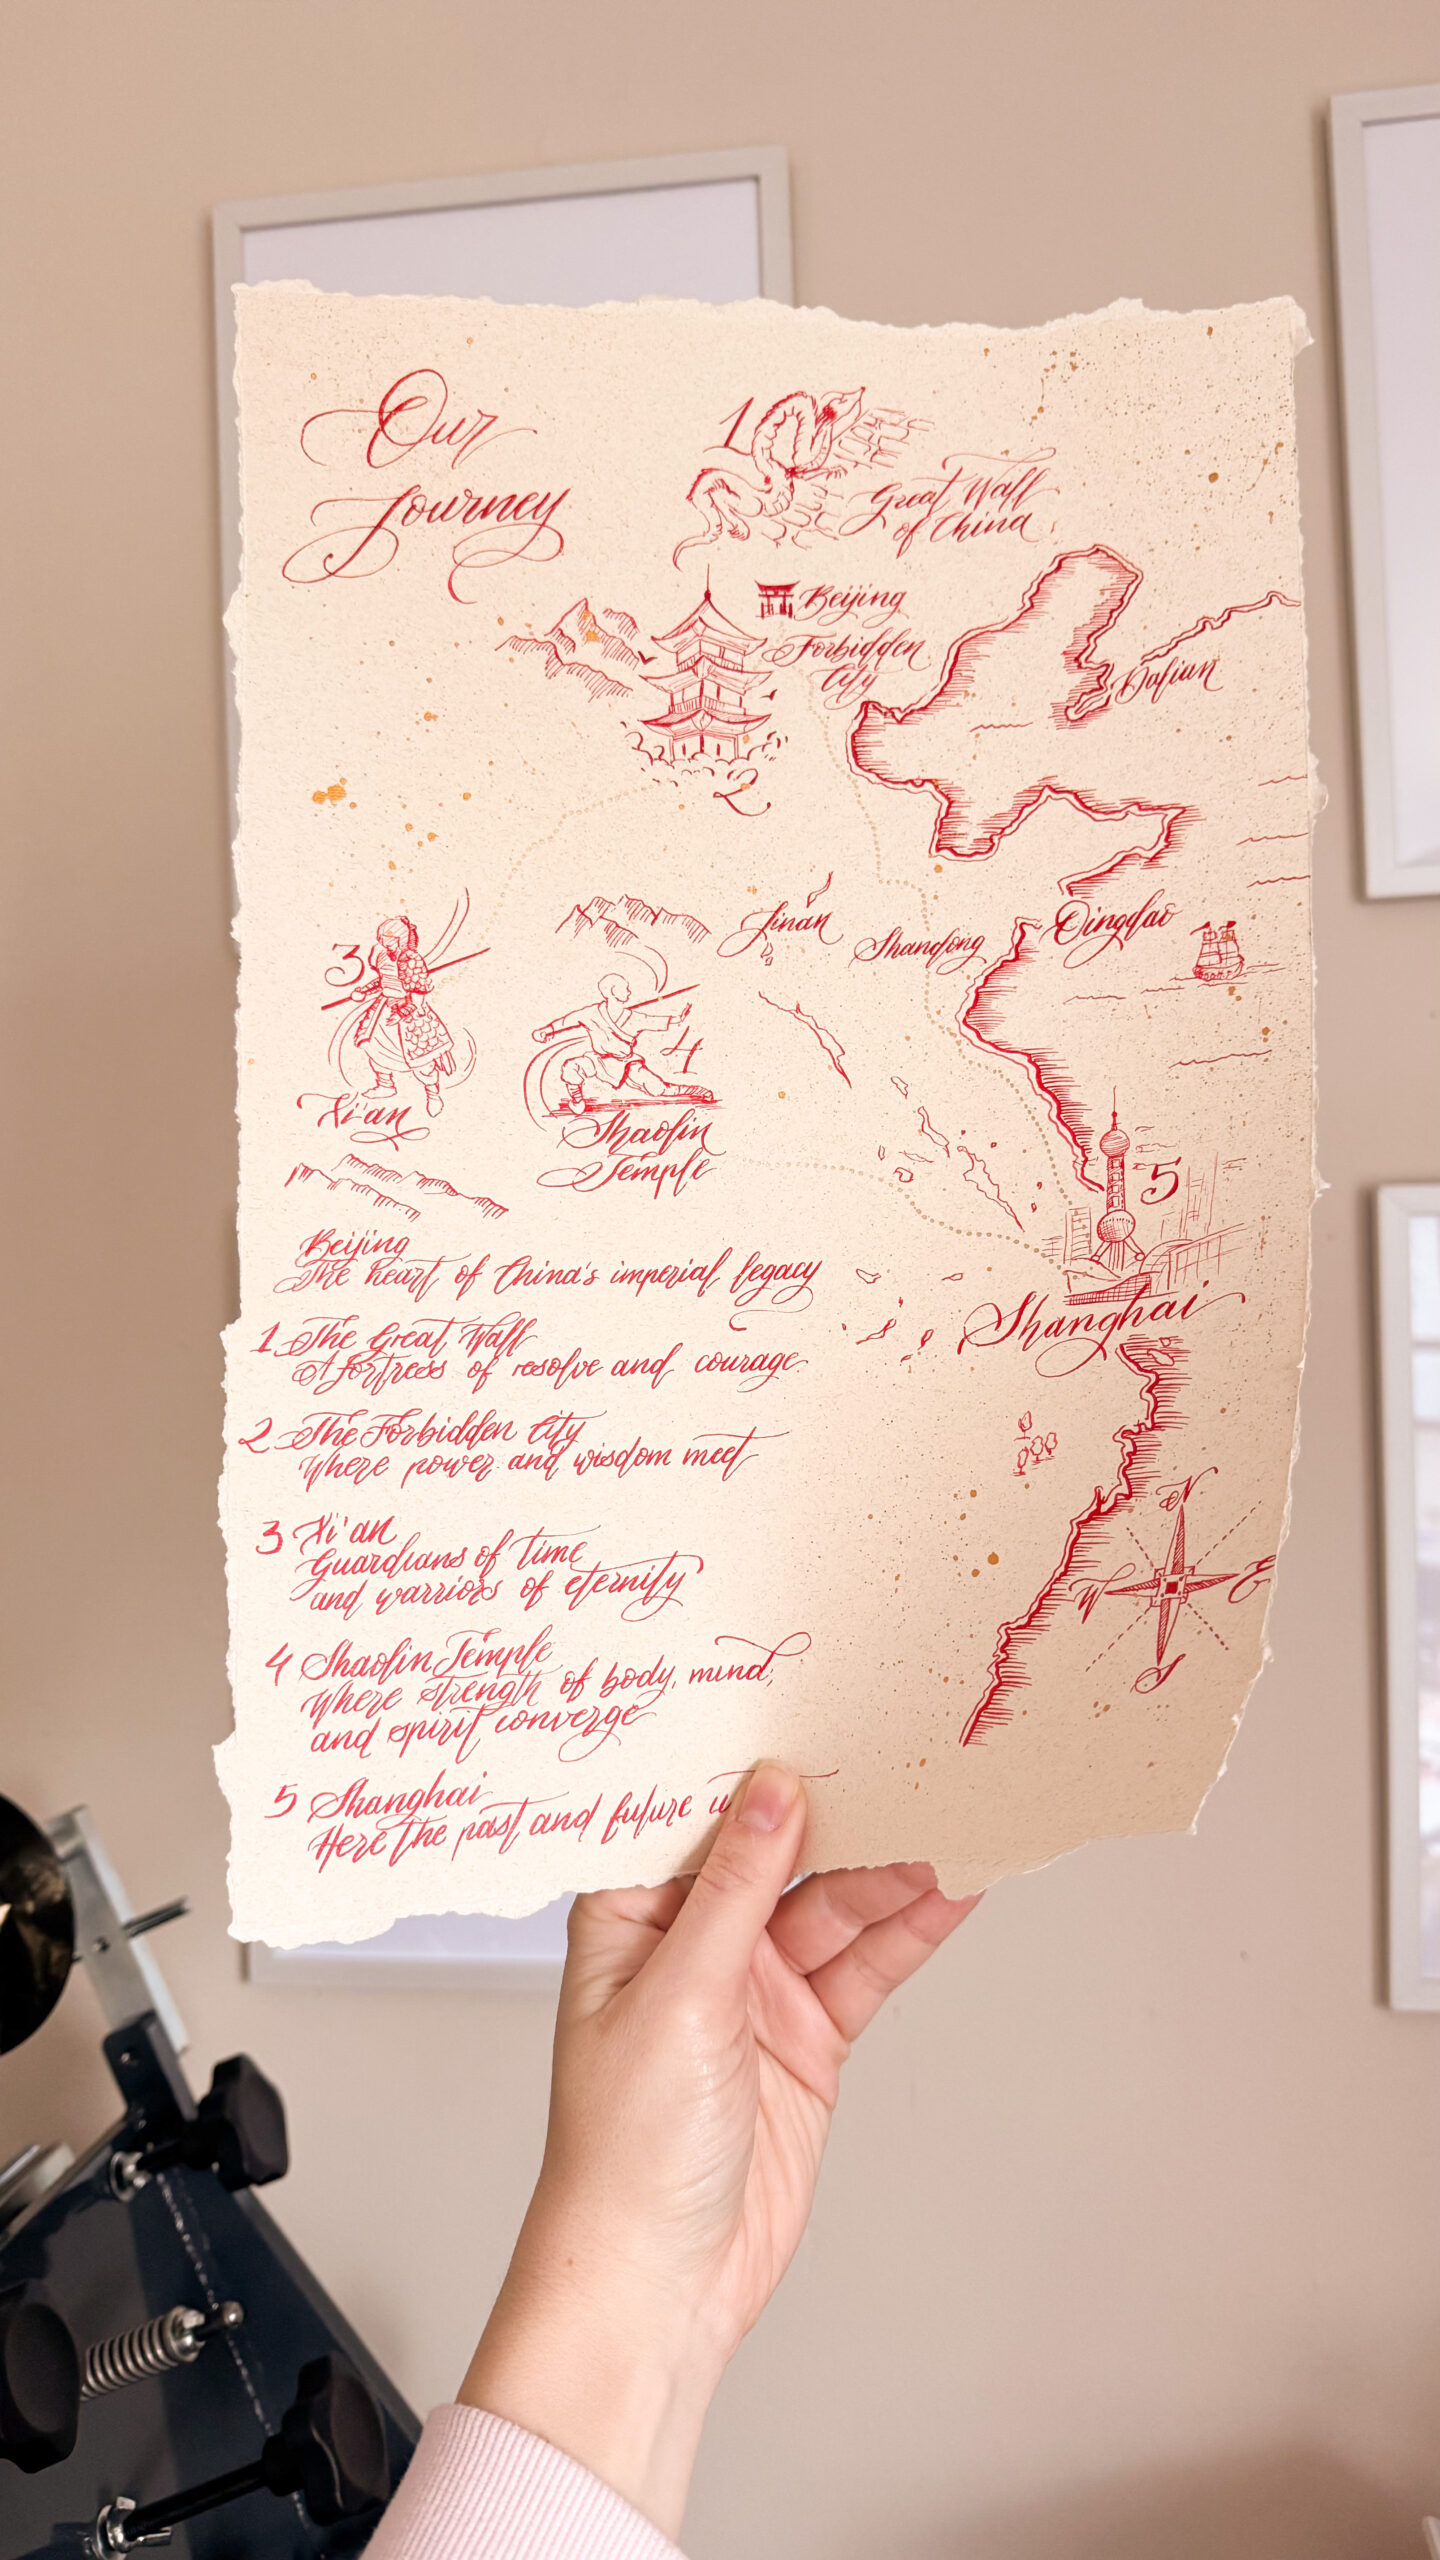 Our
Journey
1
Great Wall
of China
Beijing
Forbidden
City
Dalian
2
3
Jinan
Shandong
Qingdao
4
Xi'an
Shaolin
Temple
5
Shanghai
Beijing
The heart of China's imperial legacy
1 The Great Wall
A fortress of resolve and courage
2 The Forbidden City
Where power and wisdom meet
3 Xi'an
Guardians of time
and warriors of eternity
4 Shaolin Temple
Where strength of body, mind,
and spirit converge
5 Shanghai
Here the past and future
N
W
E
S